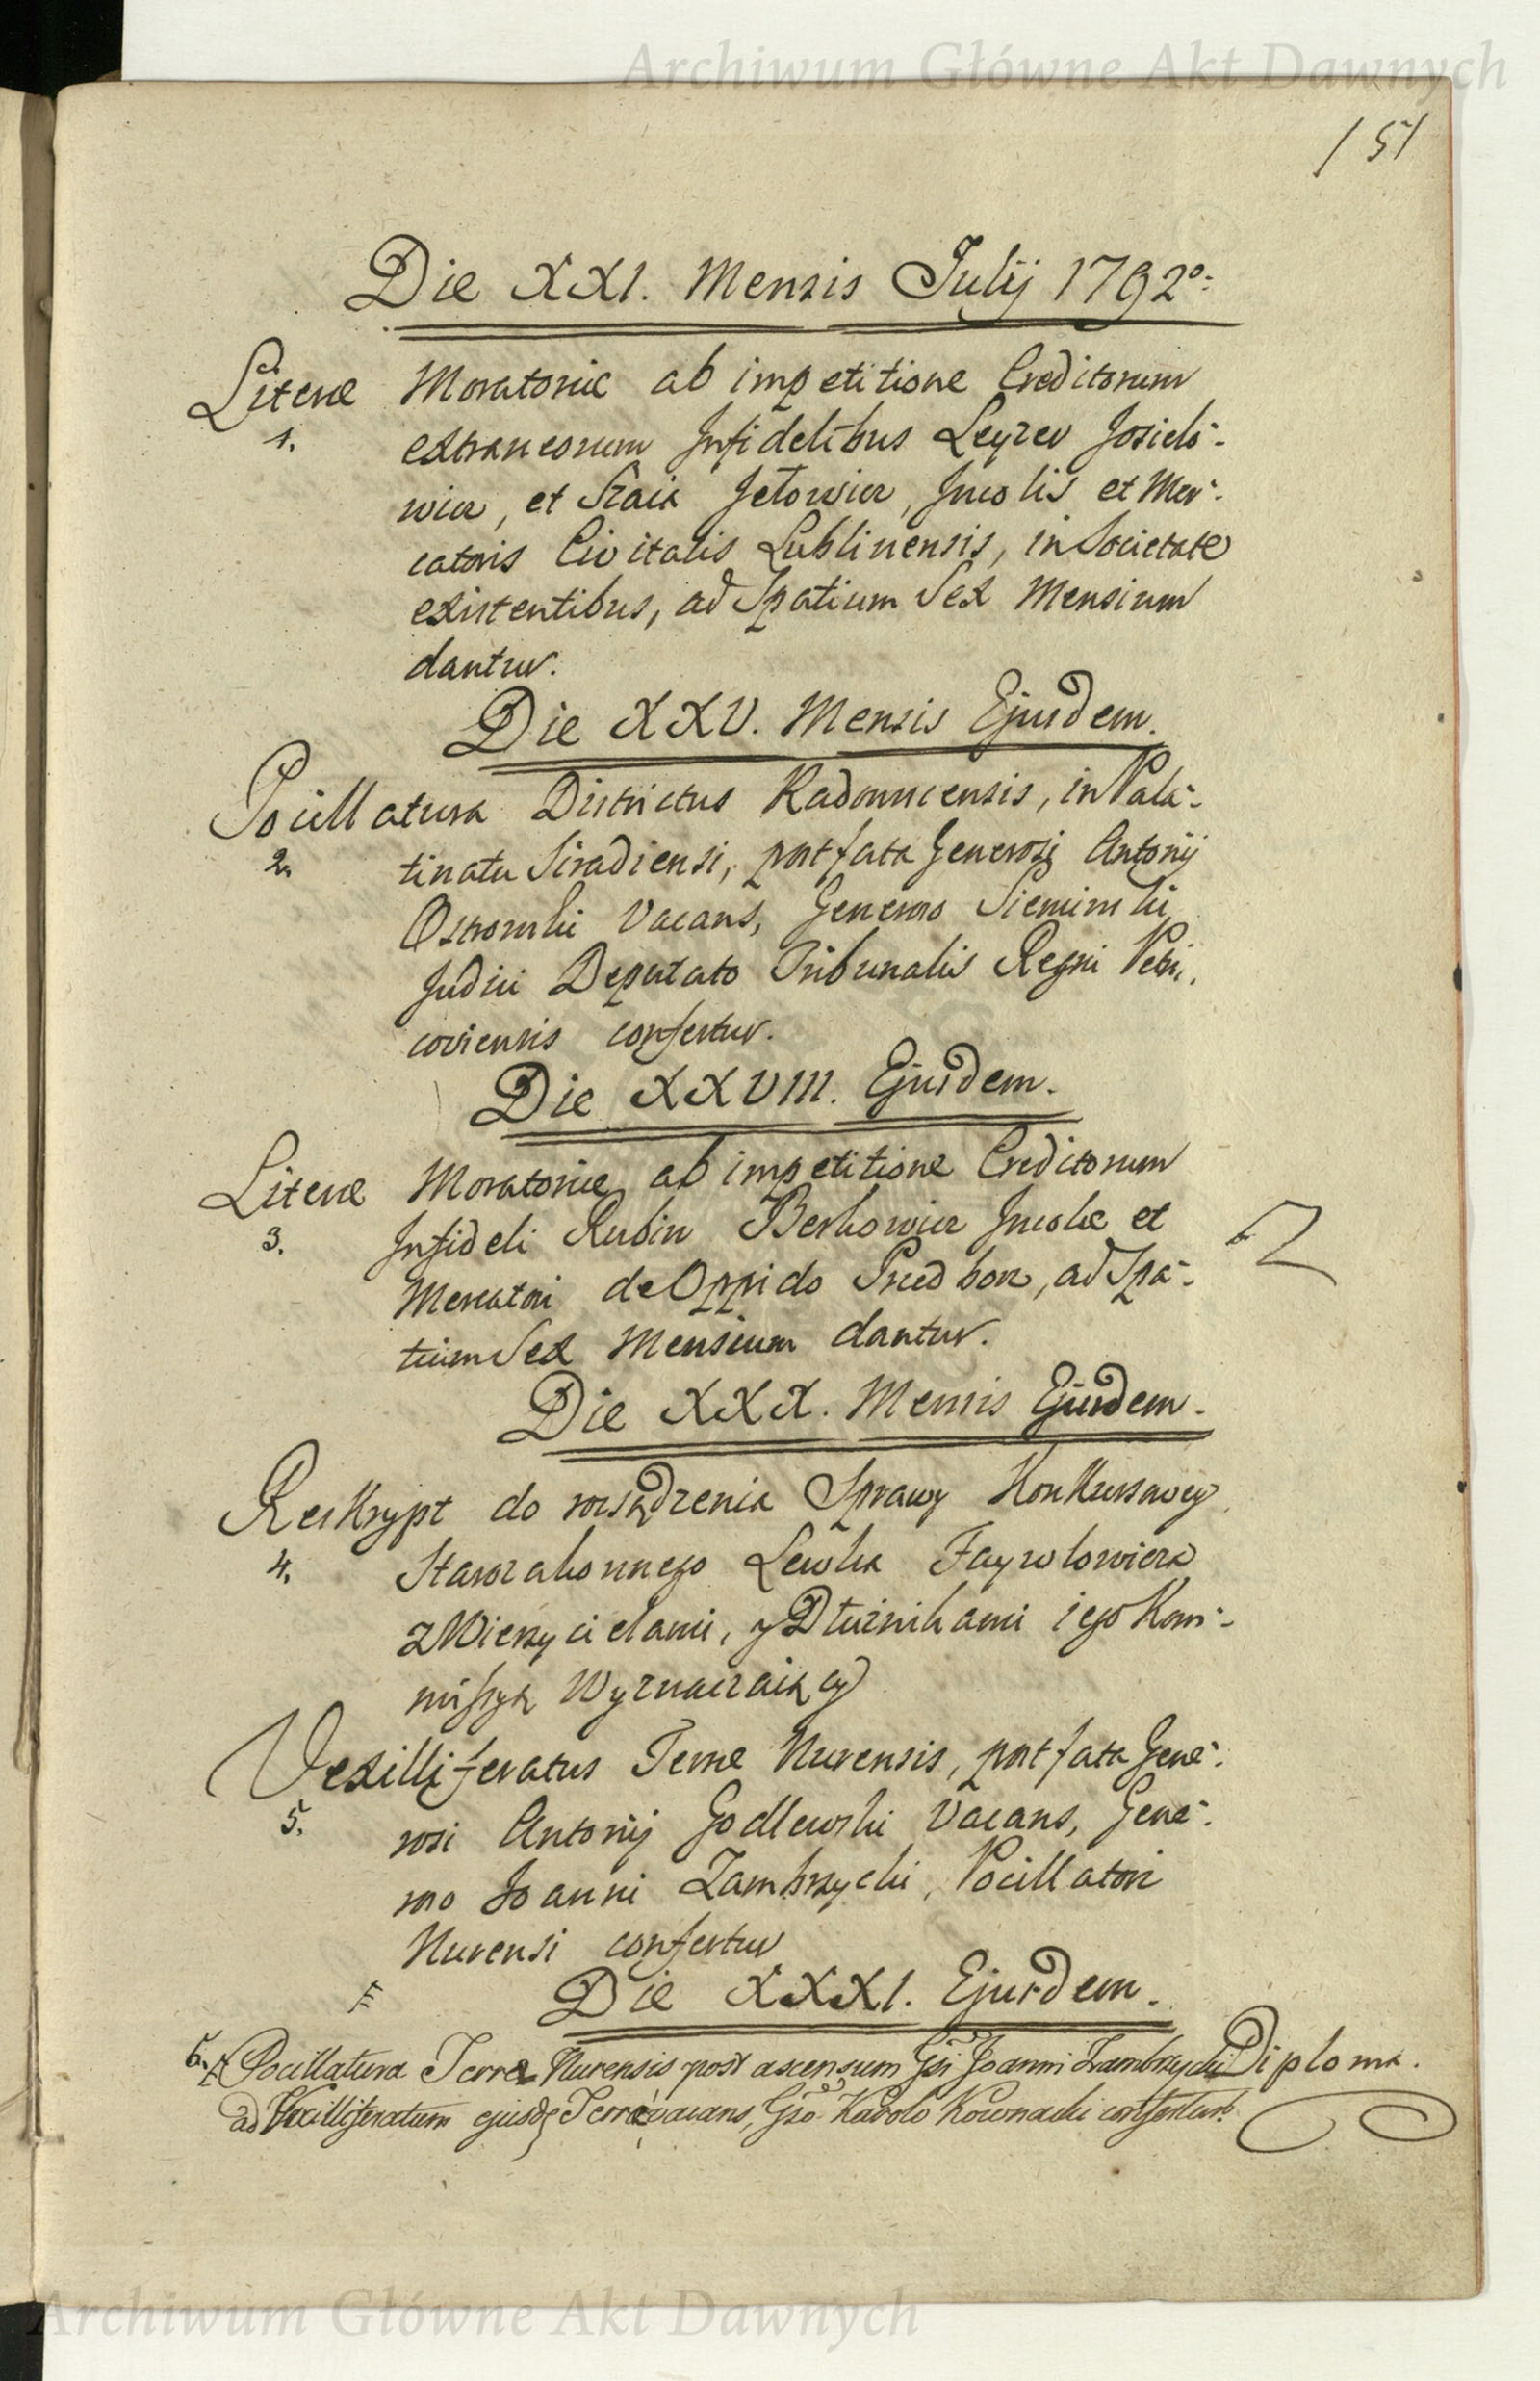 Archiwum Główne Akt Dawnych
151
Die XXI. Mensis Julij 1792o:
Literæ Moratoriæ ab impetitione Creditorum
1. extraneorum Infidelibus Leyzer Josielo-
wicz, et Szaia Jetowicz, Incolis et Mer-
catoris Civitatis Lublinensis, in Societate
existentibus, ad Spatium Sex Mensium
dantur.
Die XXV. Mensis Ejusdem.
Pocillatura Districtus Radomscensis, in Pala-
2. tinatu Siradiensi, post fata Generosi Antonij
Ostrowski Vacans, Generoso Siemiński
Judici Deputato Tribunalis Regni Petri,
coviensis confertur.
Die XXVIII. Ejusdem.
Literæ Moratoriæ ab impetitione Creditorum
3. Infideli Rubin Berkowicz Incolæ et
Mercatori de Oppido Przedborz, ad Spa-
tium Sex Mensium dantur.
Die XXX. Mensis Ejusdem.
Reskrypt do rozsądzenia Sprawy Konkursowey
4. Starozakonnego Lewka Faywlowicza
z Wierzycielami, y Dłużnikami iego Kom-
missyą Wyznaczaiący
Vexilliferatus Terræ Nurensis, post fata Gene-
5. rosi Antonij Godlewski Vacans, Gene-
roso Joanni Zambrzycki, Pocillatori
Nurensi confertur
Die XXXI. Ejusdem.
6. Pocillatura Terræ Nurensis post ascensum Gsi Joanni Zambrzycki Diploma.
ad Vexilliferatum ejusde Terræ vacans, Gso Karolo Kownacki confertur.
Archiwum Główne Akt Dawnych